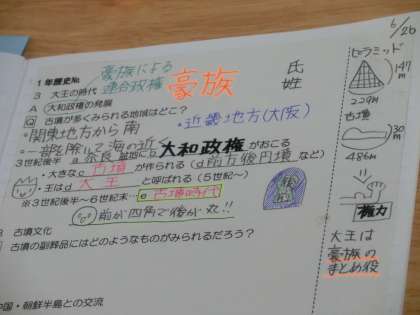 6/26
1年歴史№
3 大王の時代
豪族による
連合政権
豪族
氏
姓
A 大和政権の発展
Q 古墳が多くみられる地域はどこ?
・関東地方から南
・近畿地方(大阪)
・一部除いて海の近
3世紀後半 a 奈良 盆地に b 大和政権 がおこる
・大きな c 古墳 が作られる (d 前方後円墳 など)
・王は d 大王 と呼ばれる (5世紀~)
※3世紀後半~6世紀末… e 古墳時代
前が四角で後が丸!!
B 古墳文化
古墳の副葬品にはどのようなものがみられるだろう?
中国・朝鮮半島との交流
ピラミッド
147m
229m
古墳
30m
486m
権力
大王は
豪族の
まとめ役